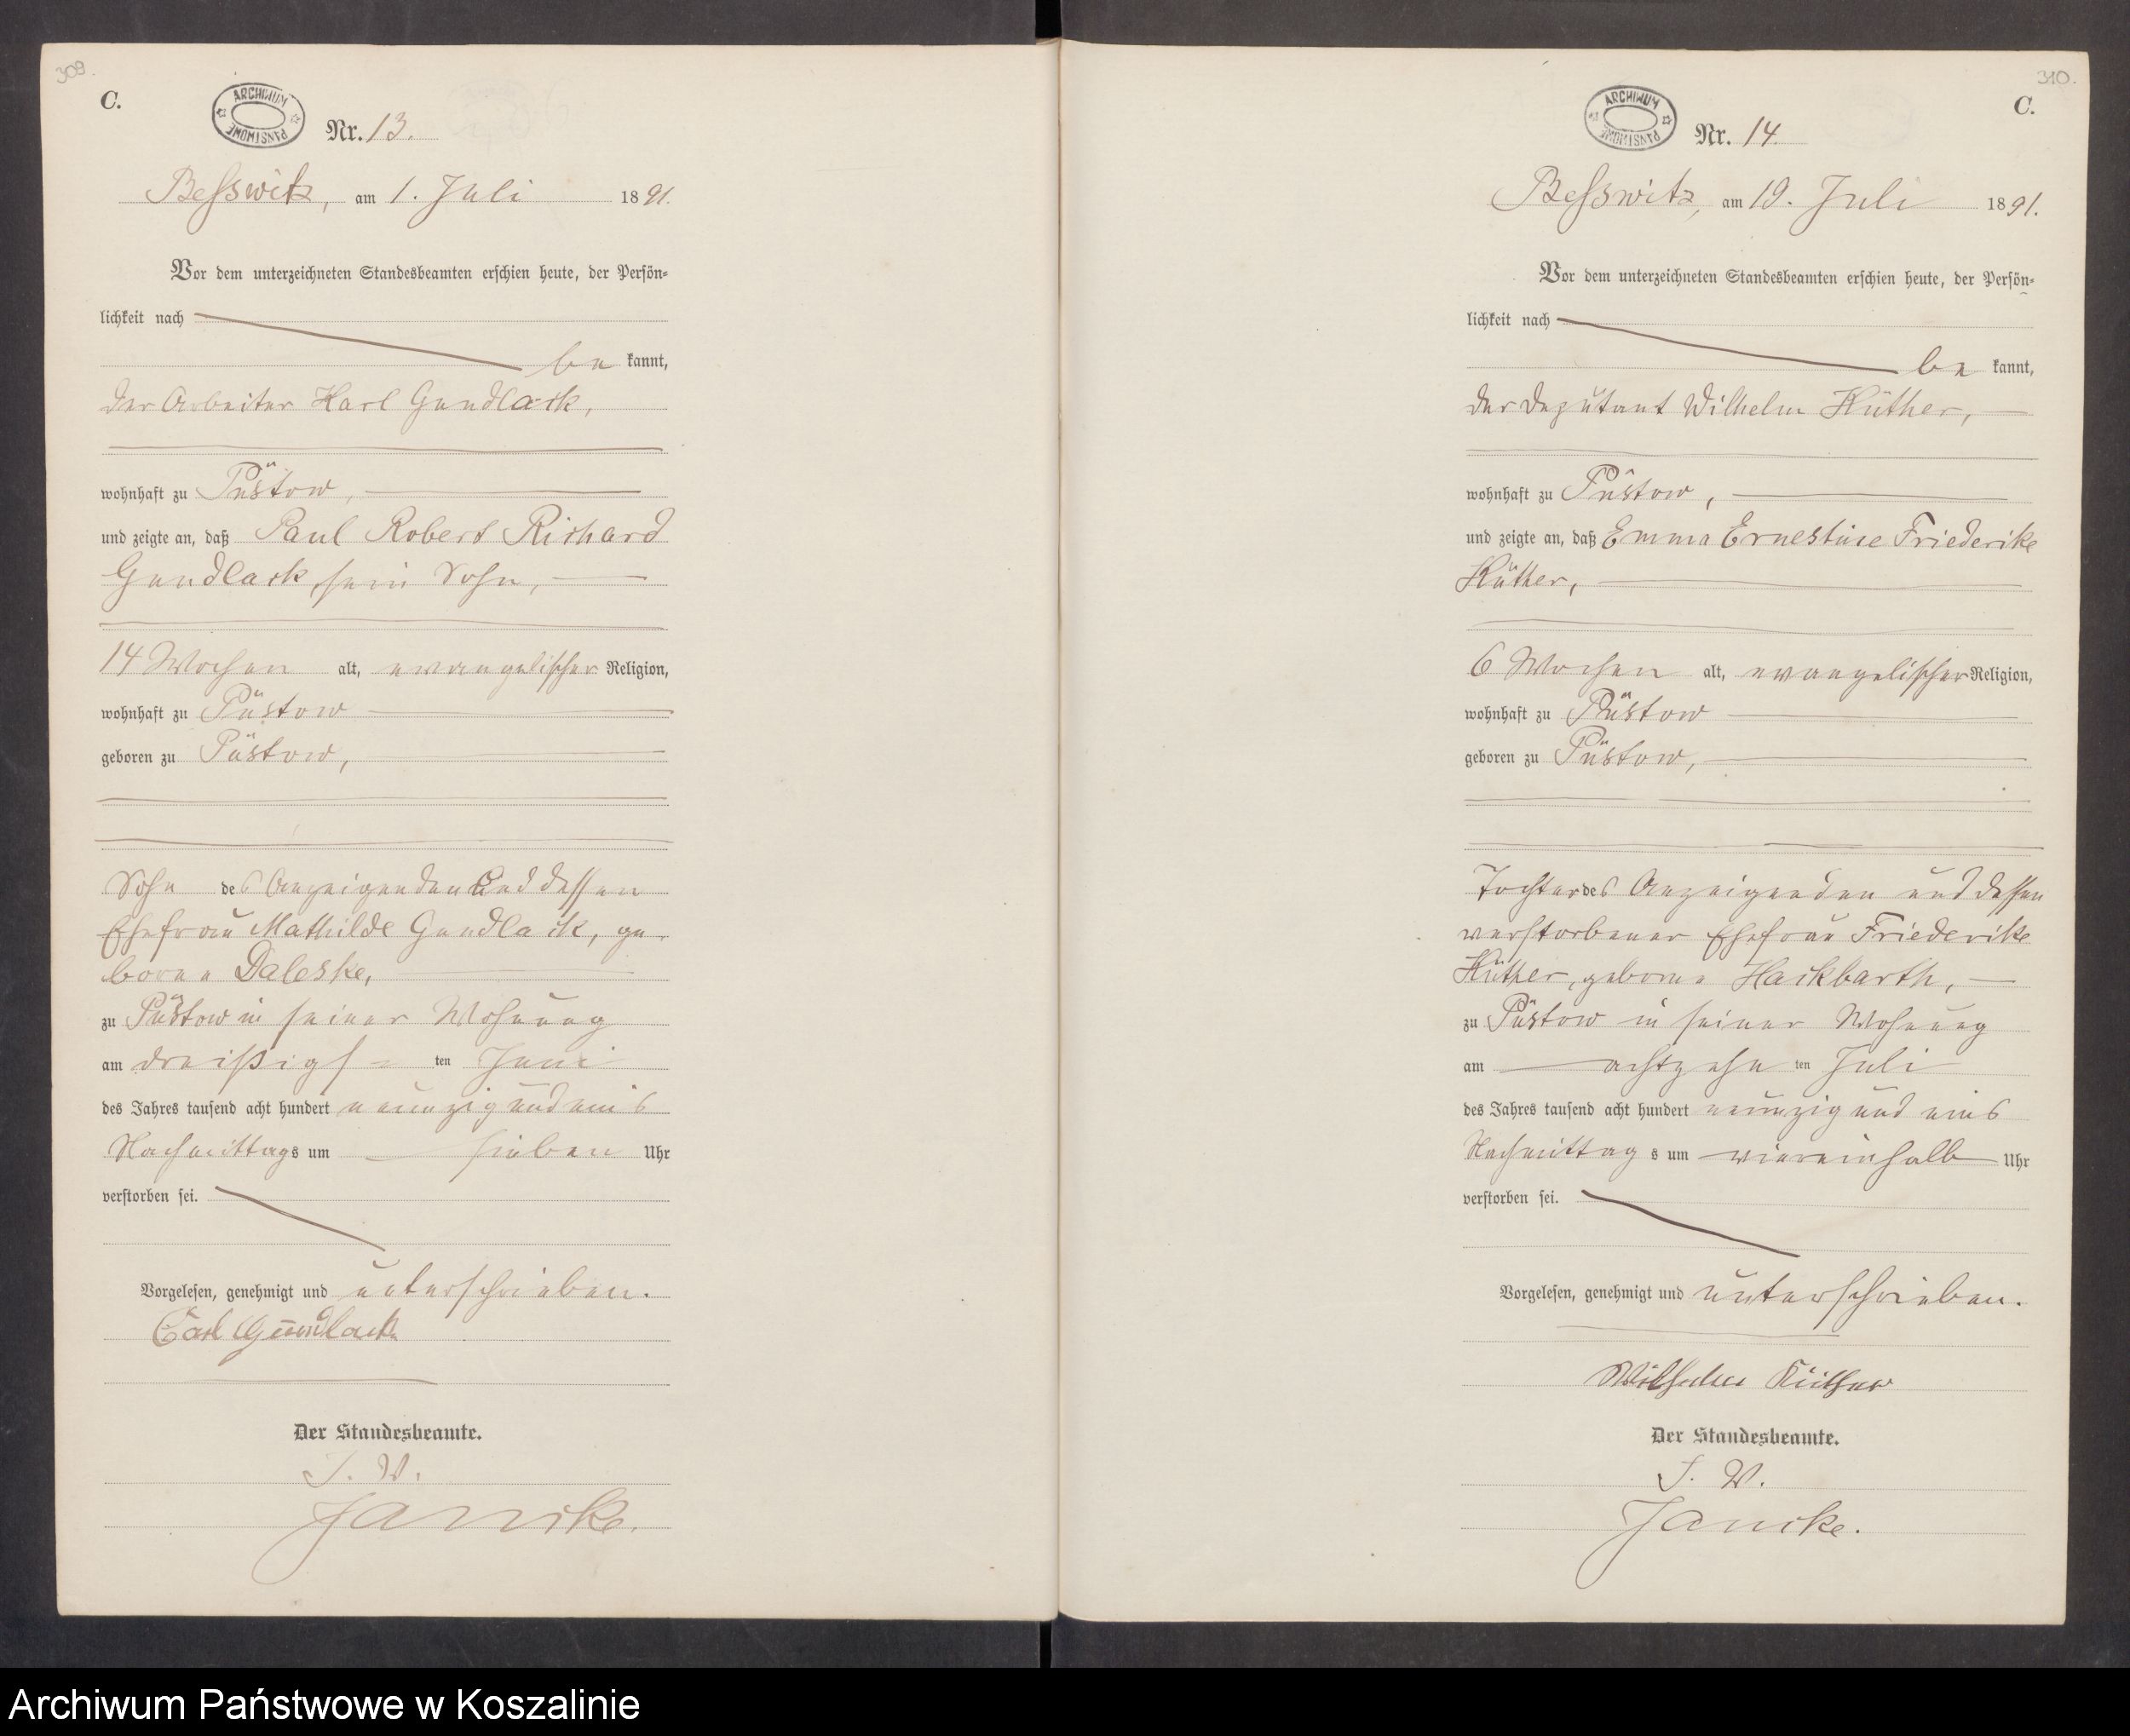 309.
C.
ARCHIWUM PAŃSTWOWE
Nr. 13.
Besswitz, am 1. Juli 1891.
Vor dem unterzeichneten Standesbeamten erschien heute, der Persön-
lichkeit nach
be kannt,
der Arbeiter Karl Gundlack,
wohnhaft zu Püstow,
und zeigte an, daß Paul Robert Richard
Gundlack, sein Sohn,
14 Wochen alt, evangelischer Religion,
wohnhaft zu Püstow
geboren zu Püstow,
Sohn des Anzeigenden und dessen
Ehefrau Mathilde Gundlack, ge-
borene Daleske,
zu Püstow in seiner Wohnung
am dreißigs = ten Juni
des Jahres tausend acht hundert neunzig und eins
Nachmittags um sieben Uhr
verstorben sei.
Vorgelesen, genehmigt und unterschrieben.
Carl Gundlack
Der Standesbeamte.
J. V.
Jancke.
310.
C.
ARCHIWUM PAŃSTWOWE
Nr. 14.
Besswitz, am 19. Juli 1891.
Vor dem unterzeichneten Standesbeamten erschien heute, der Persön-
lichkeit nach
be kannt,
der Deputant Wilhelm Küther,
wohnhaft zu Püstow,
und zeigte an, daß Emma Ernestine Friederike
Küther,
6 Wochen alt, evangelischer Religion,
wohnhaft zu Püstow
geboren zu Püstow,
Tochter des Anzeigenden und dessen
verstorbener Ehefrau Friederike
Küther, geborene Hackbarth,
zu Püstow in seiner Wohnung
am achtzehn ten Juli
des Jahres tausend acht hundert neunzig und eins
Nachmittags um viereinhalb Uhr
verstorben sei.
Vorgelesen, genehmigt und unterschrieben.
Wilhelm Küther
Der Standesbeamte.
J. V.
Jancke.
Archiwum Państwowe w Koszalinie